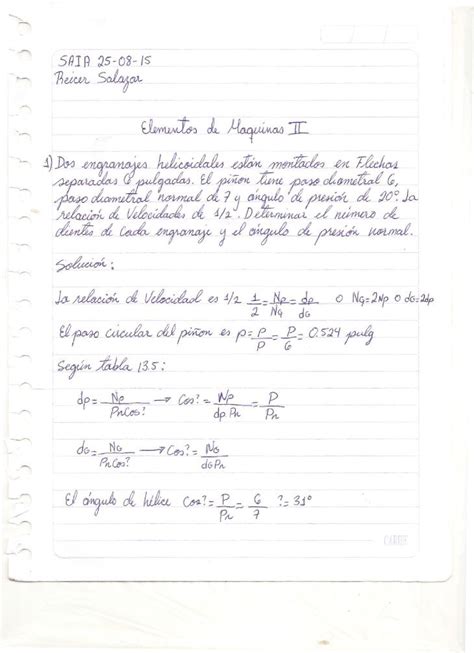 SAIA 25-08-15
Reicer Salazar
Elementos de Maquinas II
1) Dos engranajes helicoidales están montados en Flechas
separadas 6 pulgadas. El piñon tiene paso diametral 6,
paso diametral normal de 7 y angulo de presión de 20°. La
relación de Velocidades de 1/2. Determinar el número de
dientes de Cada engranaje y el ángulo de presión normal.
Solución:
La relación de Velocidad es 1/2 1/2 = Np/NG = dp/dG o NG=2Np o dG=2dp
El paso circular del piñon es p=P/P=P/6=0.524 pulg
Según tabla 13.5:
dp= Np/PnCos? → Cos?= Np/dpPn = P/Pn
dG= NG/PnCos? → Cos?= NG/dGPn
El ángulo de hélice Cos?= P/Pn = 6/7 ?=31°